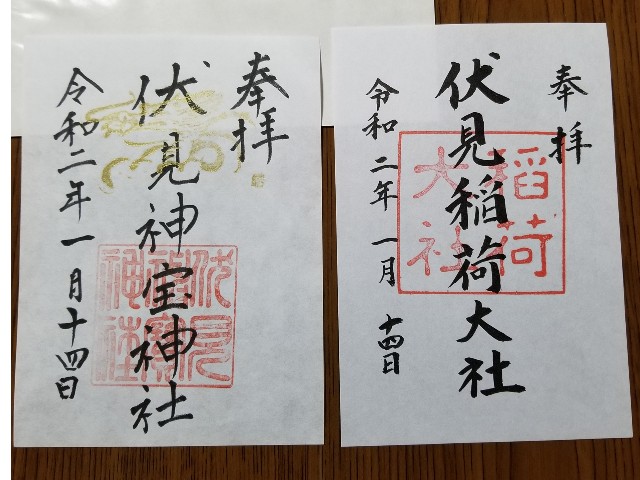 奉拝
伏見稲荷大社
稲荷
大社
令和二年一月十四日
奉拝
伏見神宝神社
令和二年一月十四日